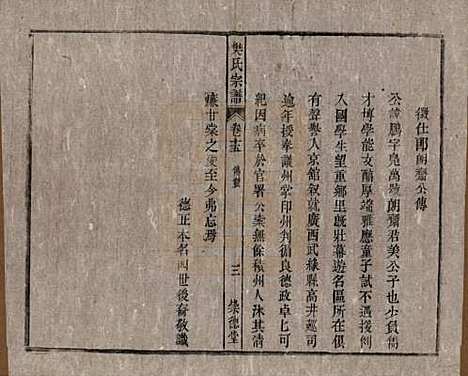 徵仕郎朗齋公傳
公諱鵬字堯萬號朗齋君美公子也少負雋
才博學能文醇厚端雅應童子試不遇援例
入國學生望重鄉里旣壯幕遊名區所在俱
有聲譽入京館敘就廣西武緣縣高井巡司
逾年授奉議州掌印州判循良德政卓乜可
紀因病卒於官署公槖無餘積州人沐其清
廉甘棠之愛至今弗忘焉
德正本名四世後裔敬識
樊氏宗譜
卷十五
傳贊
三
崇德堂